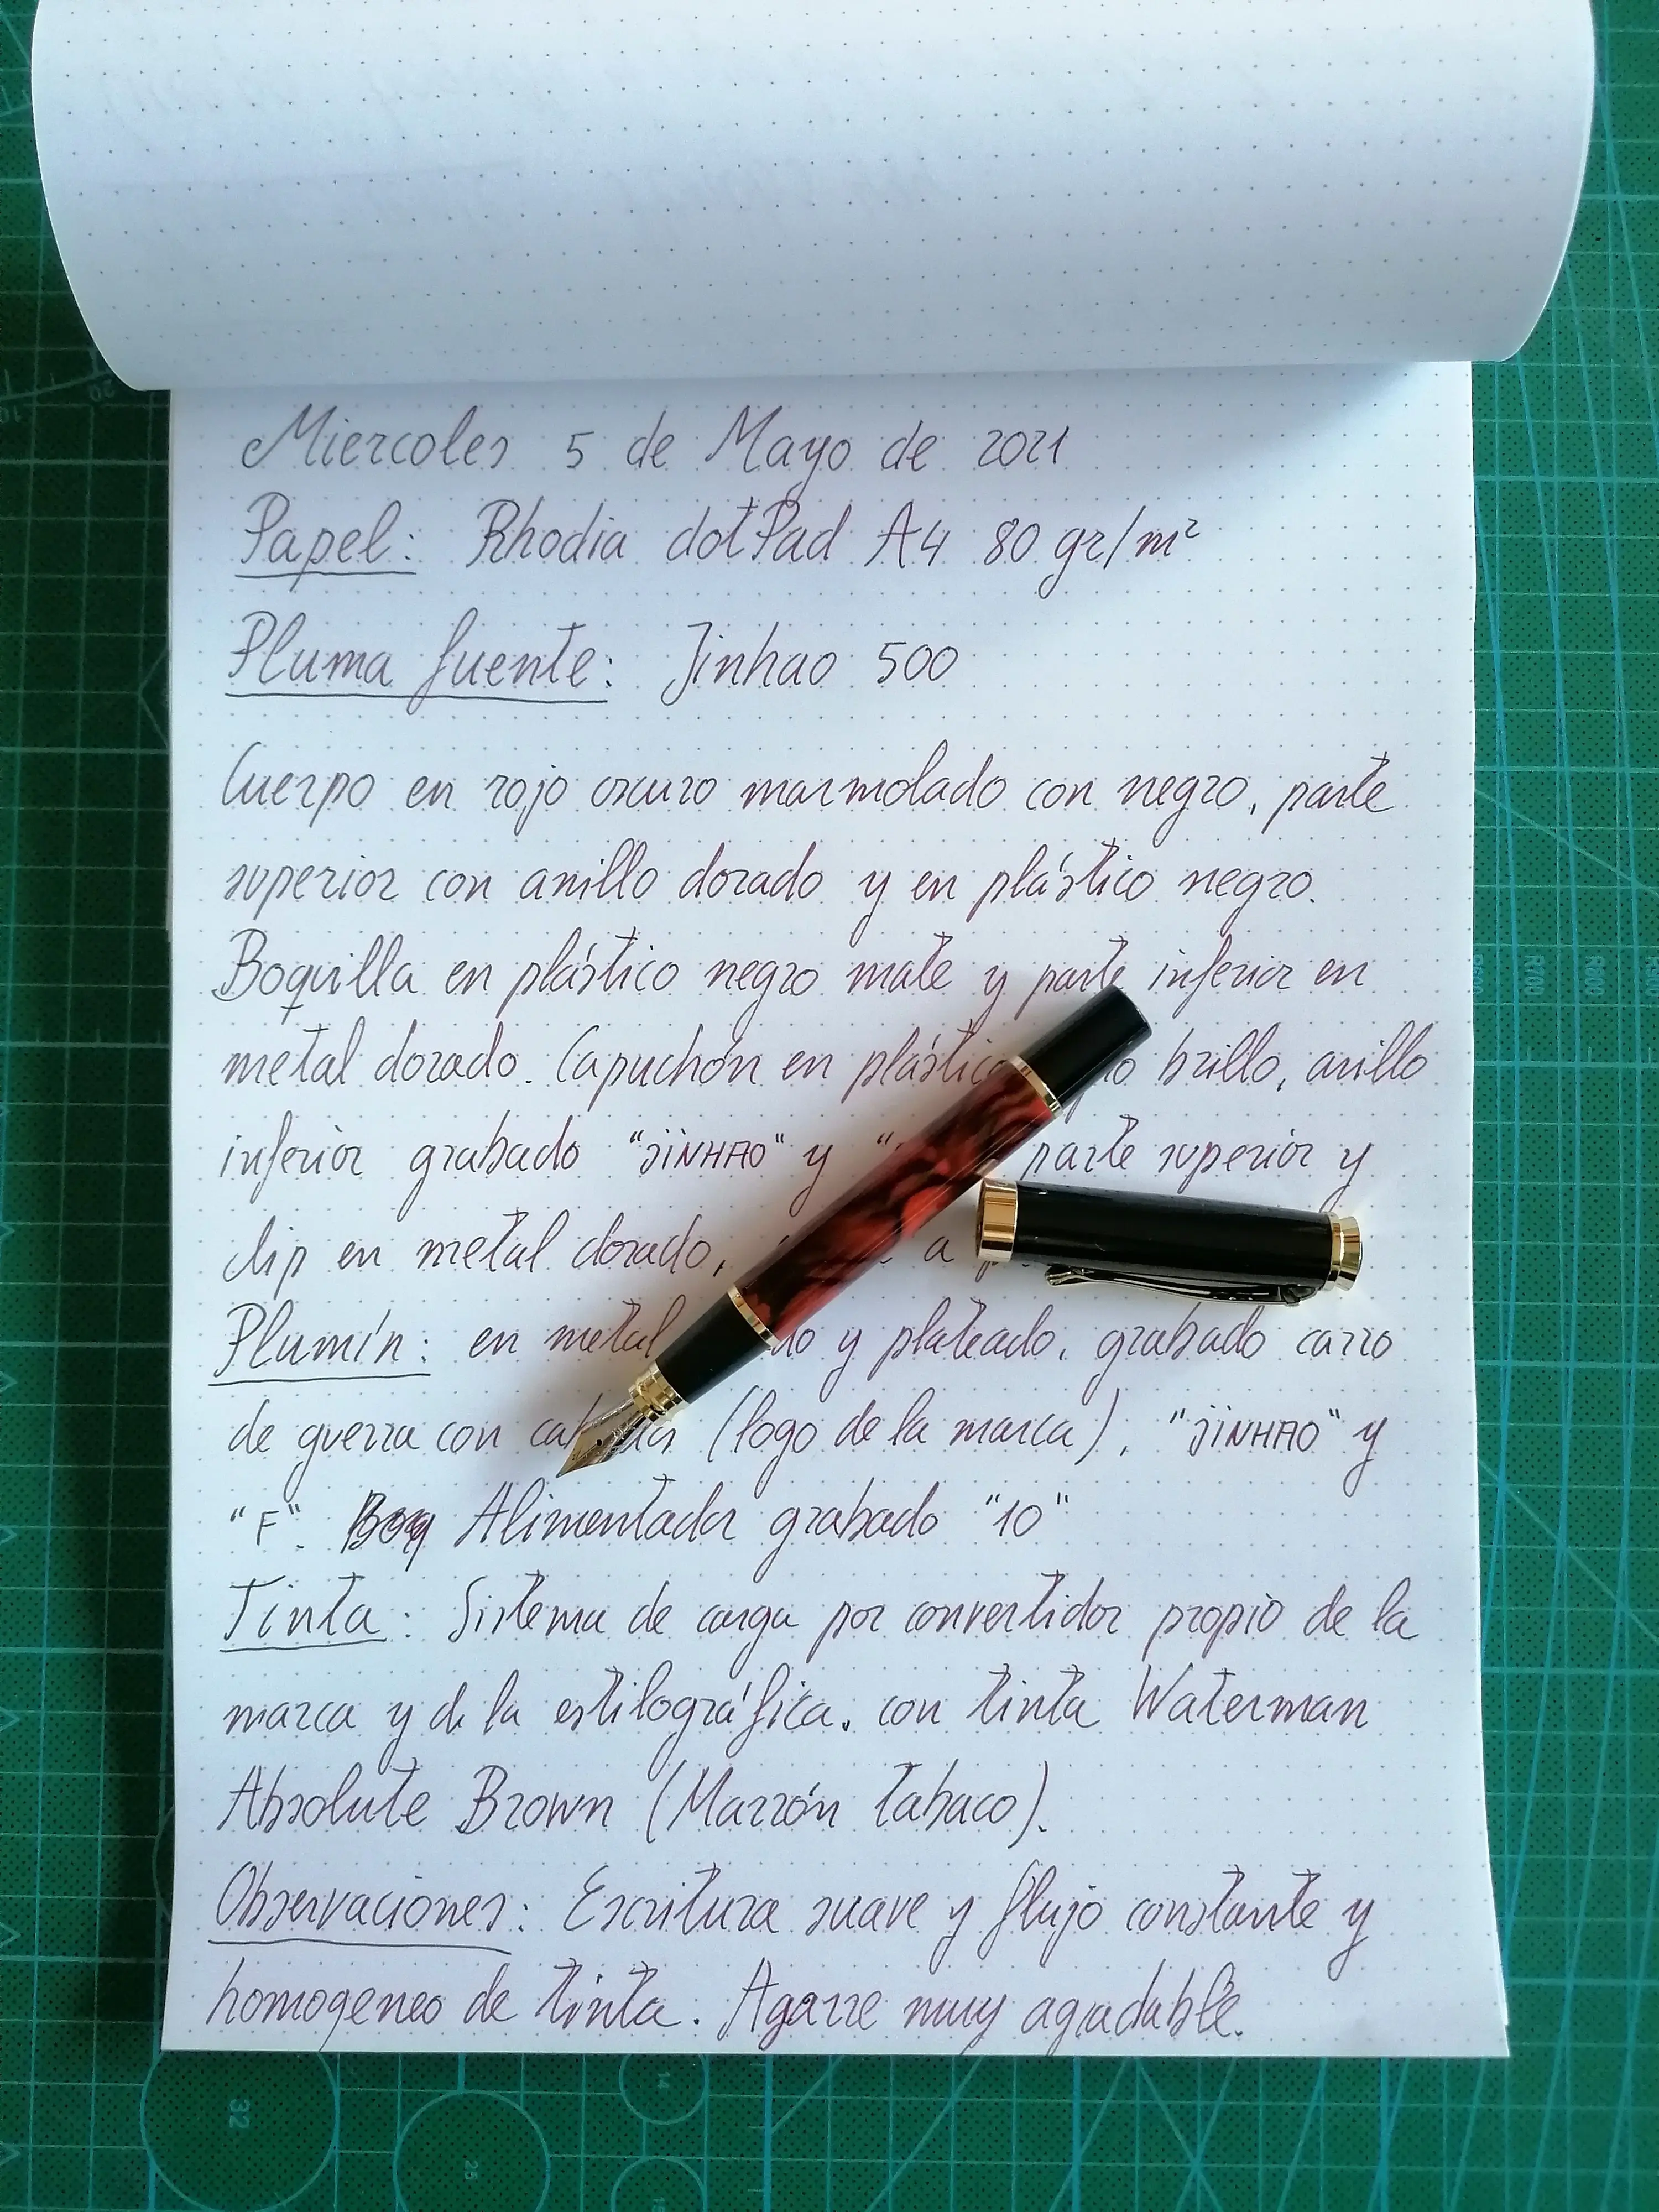 Miercoles 5 de Mayo de 2021
Papel: Rhodia dotPad A4 80 gr/m²
Pluma fuente: Jinhao 500
Cuerpo en rojo oscuro marmolado con negro, parte
superior con anillo dorado y en plástico negro.
Boquilla en plástico negro mate y parte inferior en
metal dorado. Capuchón en plástico brillo, anillo
inferior grabado "JINHAO" y parte superior y
clip en metal dorado, a
Plumín: en metal y plateado, grabado carro
de guerra con (logo de la marca), "JINHAO" y
"F". Boq Alimentador grabado "10"
Tinta: Sistema de carga por convertidor propio de la
marca y de la estilográfica. con tinta Waterman
Absolute Brown (Marrón tabaco).
Observaciones: Escritura suave y flujo constante y
homogeneo de tinta. Agarre muy agradable.
32
25
14
R700
R600